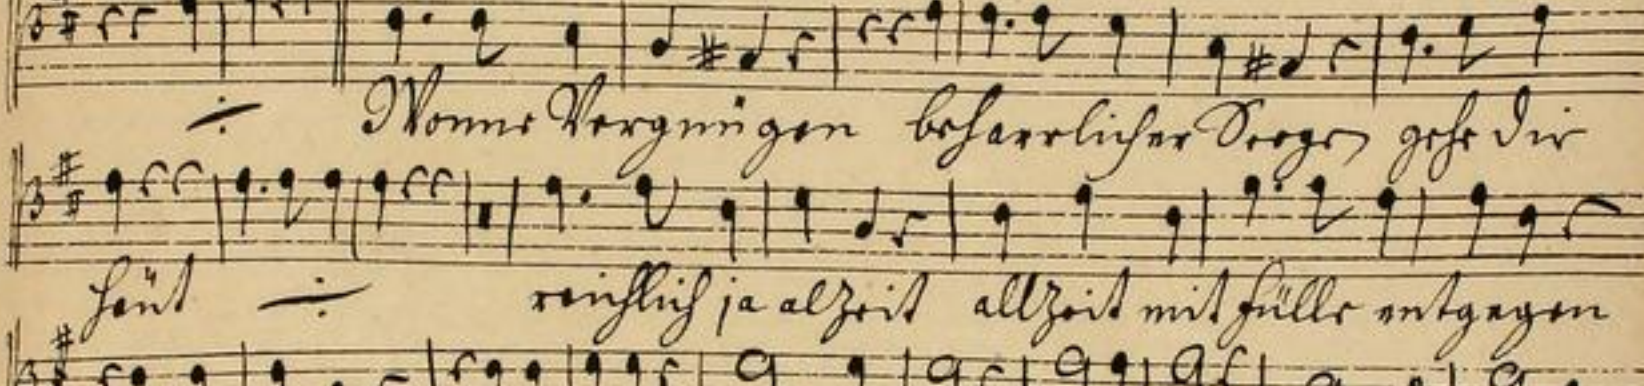 Wonne Vergnügen beharrlicher Seegen gehe dir
heüt reichlich ja alzeit allzeit mit fülle entgegen